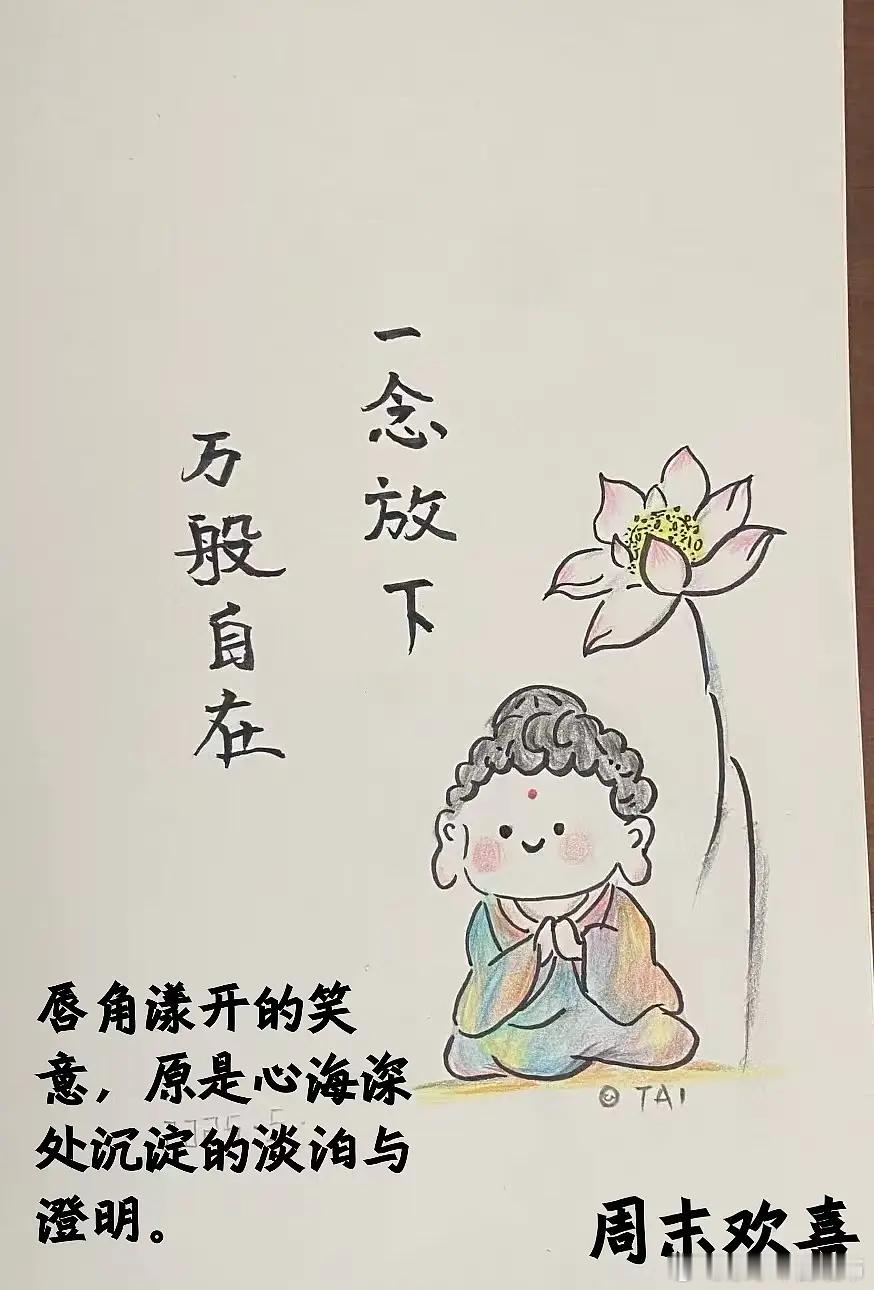 一念放下
万般自在
© TAI
唇角漾开的笑
意，原是心海深
处沉淀的淡泊与
澄明。
周末欢喜